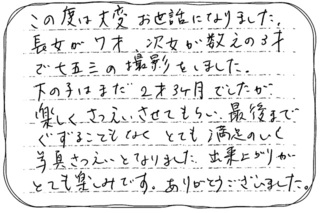 この度は大変お世話になりました。
長女が7才、次女が数えの3才
で七五三の撮影をしました。
下の子はまだ2才3ヶ月でしたが
楽しくさつえいさせてもらい、最後まで
ぐずることもなくとても満足のいく
写真さつえいとなりました。出来上がりが
とても楽しみです。ありがとうございました。